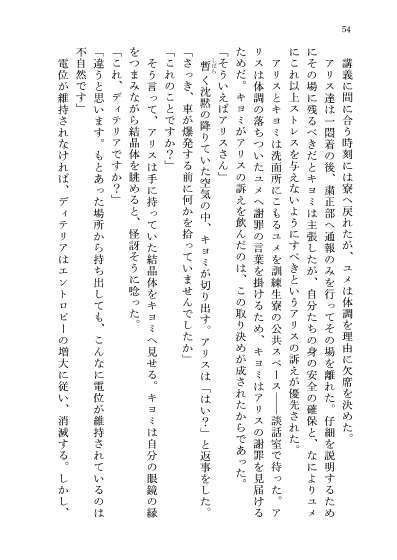 54
講義に間に合う時刻には寮へ戻れたが、ユメは体調を理由に欠席を決めた。
アリス達は一悶着の後、粛正部へ通報のみを行ってその場を離れた。仔細を説明するため
にその場に残るべきだとキヨミは主張したが、自分たちの身の安全の確保と、なによりユメ
にこれ以上ストレスを与えないようにすべきというアリスの訴えが優先された。
アリスとキヨミは洗面所にこもるユメを訓練生寮の公共スペース――談話室で待った。ア
リスは体調の落ちついたユメへ謝罪の言葉を掛けるため、キヨミはアリスの謝罪を見届ける
ためだ。キヨミがアリスの訴えを飲んだのは、この取り決めが成されたからであった。
「そういえばアリスさん」
暫く沈黙の降りていた空気の中、キヨミが切り出す。アリスは「はい？」と返事をした。
「さっき、車が爆発する前に何かを拾っていませんでしたか」
「このことですか？」
そう言って、アリスは手に持っていた結晶体をキヨミへ見せる。キヨミは自分の眼鏡の縁
をつまみながら結晶体を眺めると、怪訝そうに唸った。
「これ、ディテリアですか？」
「違うと思います。もとあった場所から持ち出しても、こんなに電位が維持されているのは
不自然です」
電位が維持されなければ、ディテリアはエントロピーの増大に従い、消滅する。しかし、